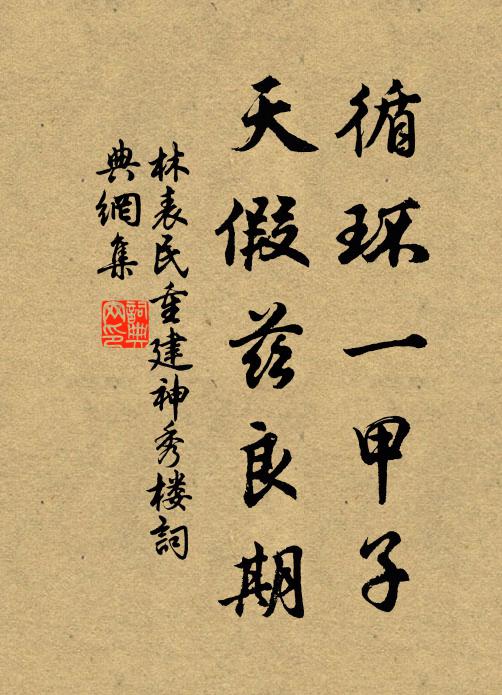 循环一甲子
天假兹良期
林表民重建神秀楼詞
典網集
詞典
网印